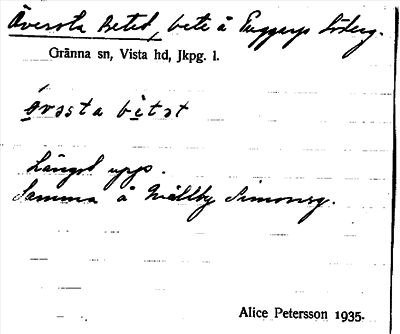 Översta Betet, bete å Tuggarps Söderg.
Gränna sn, Vista hd, Jkpg. l.
övəsta bètət
Längst upp.
Samma å Målby Simonsg.
Alice Petersson 1935.